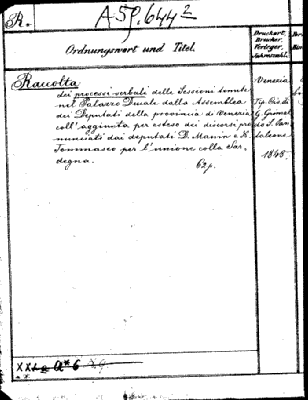 R.
A 59.644²
Ordnungswort und Titel.
Druckort, Drucker, Verleger, Jahrzahl.
Raccolta
dei processi verbali delle Sessioni tenute
nel Palazzo Ducale dalla Assemblea
dei Deputati della provincia di Venezia
coll'aggiunta per esteso dei discorsi pro
nunciati dai deputati D. Manin e N.
Tommaseo per l'unione colla Sar
degna.
62 p.
Venezia
Tip.
1848.